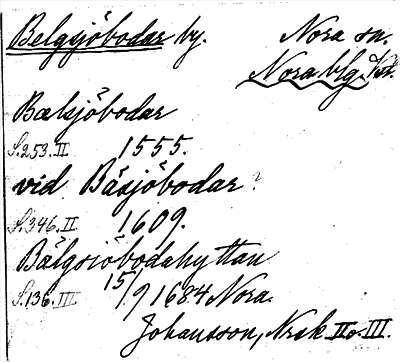 Belgsjöbodar by. Nora sn.
Nora blg. Vstm.
Bælsjöbodar
S. 253. II 1555.
vid Bäsjöbodar?
S. 346. II 1609.
Bälgsiöbodahyttan
S. 136. III 15/9 1684 Nora.
Johansson, Nrsk II o. III.